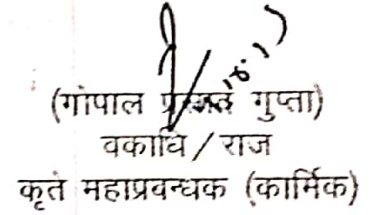 (गोपाल प्रसाद गुप्ता)
वकाधि / राज
कृते महाप्रवन्धक (कार्मिक)